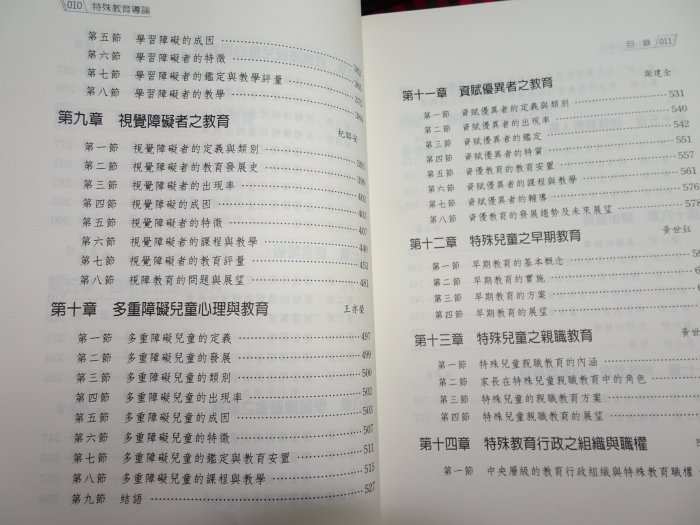 010 特殊教育導論
第五節 學習障礙的成因
第六節 學習障礙者的特徵
第七節 學習障礙者的鑑定與教學評量
第八節 學習障礙者的教學
第九章 視覺障礙者之教育 杞昭安
第一節 視覺障礙者的定義與類別
第二節 視覺障礙者的教育發展史
第三節 視覺障礙者的出現率
第四節 視覺障礙的成因 403
第五節 視覺障礙者的特徵 407
第六節 視覺障礙者的課程與教學 440
第七節 視覺障礙者的教育評量 453
第八節 視障教育的問題與展望 481
第十章 多重障礙兒童心理與教育
第一節 多重障礙兒童的定義 497
第二節 多重障礙兒童的發展 499
第三節 多重障礙兒童的類別 500
第四節 多重障礙兒童的出現率 502
第五節 多重障礙兒童的成因 503
第六節 多重障礙兒童的特徵 507
第七節 多重障礙兒童的鑑定與教育安置 511
第八節 多重障礙兒童的課程與教學 515
第九節 結語 527
目錄 011
第十一章 資賦優異者之教育 謝建全
第一節 資賦優異者的定義與類別 531
第二節 資賦優異者的出現率 540
第三節 資賦優異者的鑑定 542
第四節 資賦優異者的特質 551
第五節 資優教育的教育安置 557
第六節 資賦優異者的課程與教學 561
第七節 資賦優異者的輔導 576
第八節 資優教育的發展趨勢及未來展望 578
第十二章 特殊兒童之早期教育 黃世鈺
第一節 早期教育的基本概念
第二節 早期教育的實施
第三節 早期教育的方案
第四節 早期教育的展望
第十三章 特殊兒童之親職教育 黃世
第一節 特殊兒童親職教育的內涵
第二節 家長在特殊兒童親職教育中的角色
第三節 特殊兒童的親職教育方案
第四節 特殊兒童親職教育的展望
第十四章 特殊教育行政之組織與職權
第一節 中央層級的教育行政組織與特殊教育職權